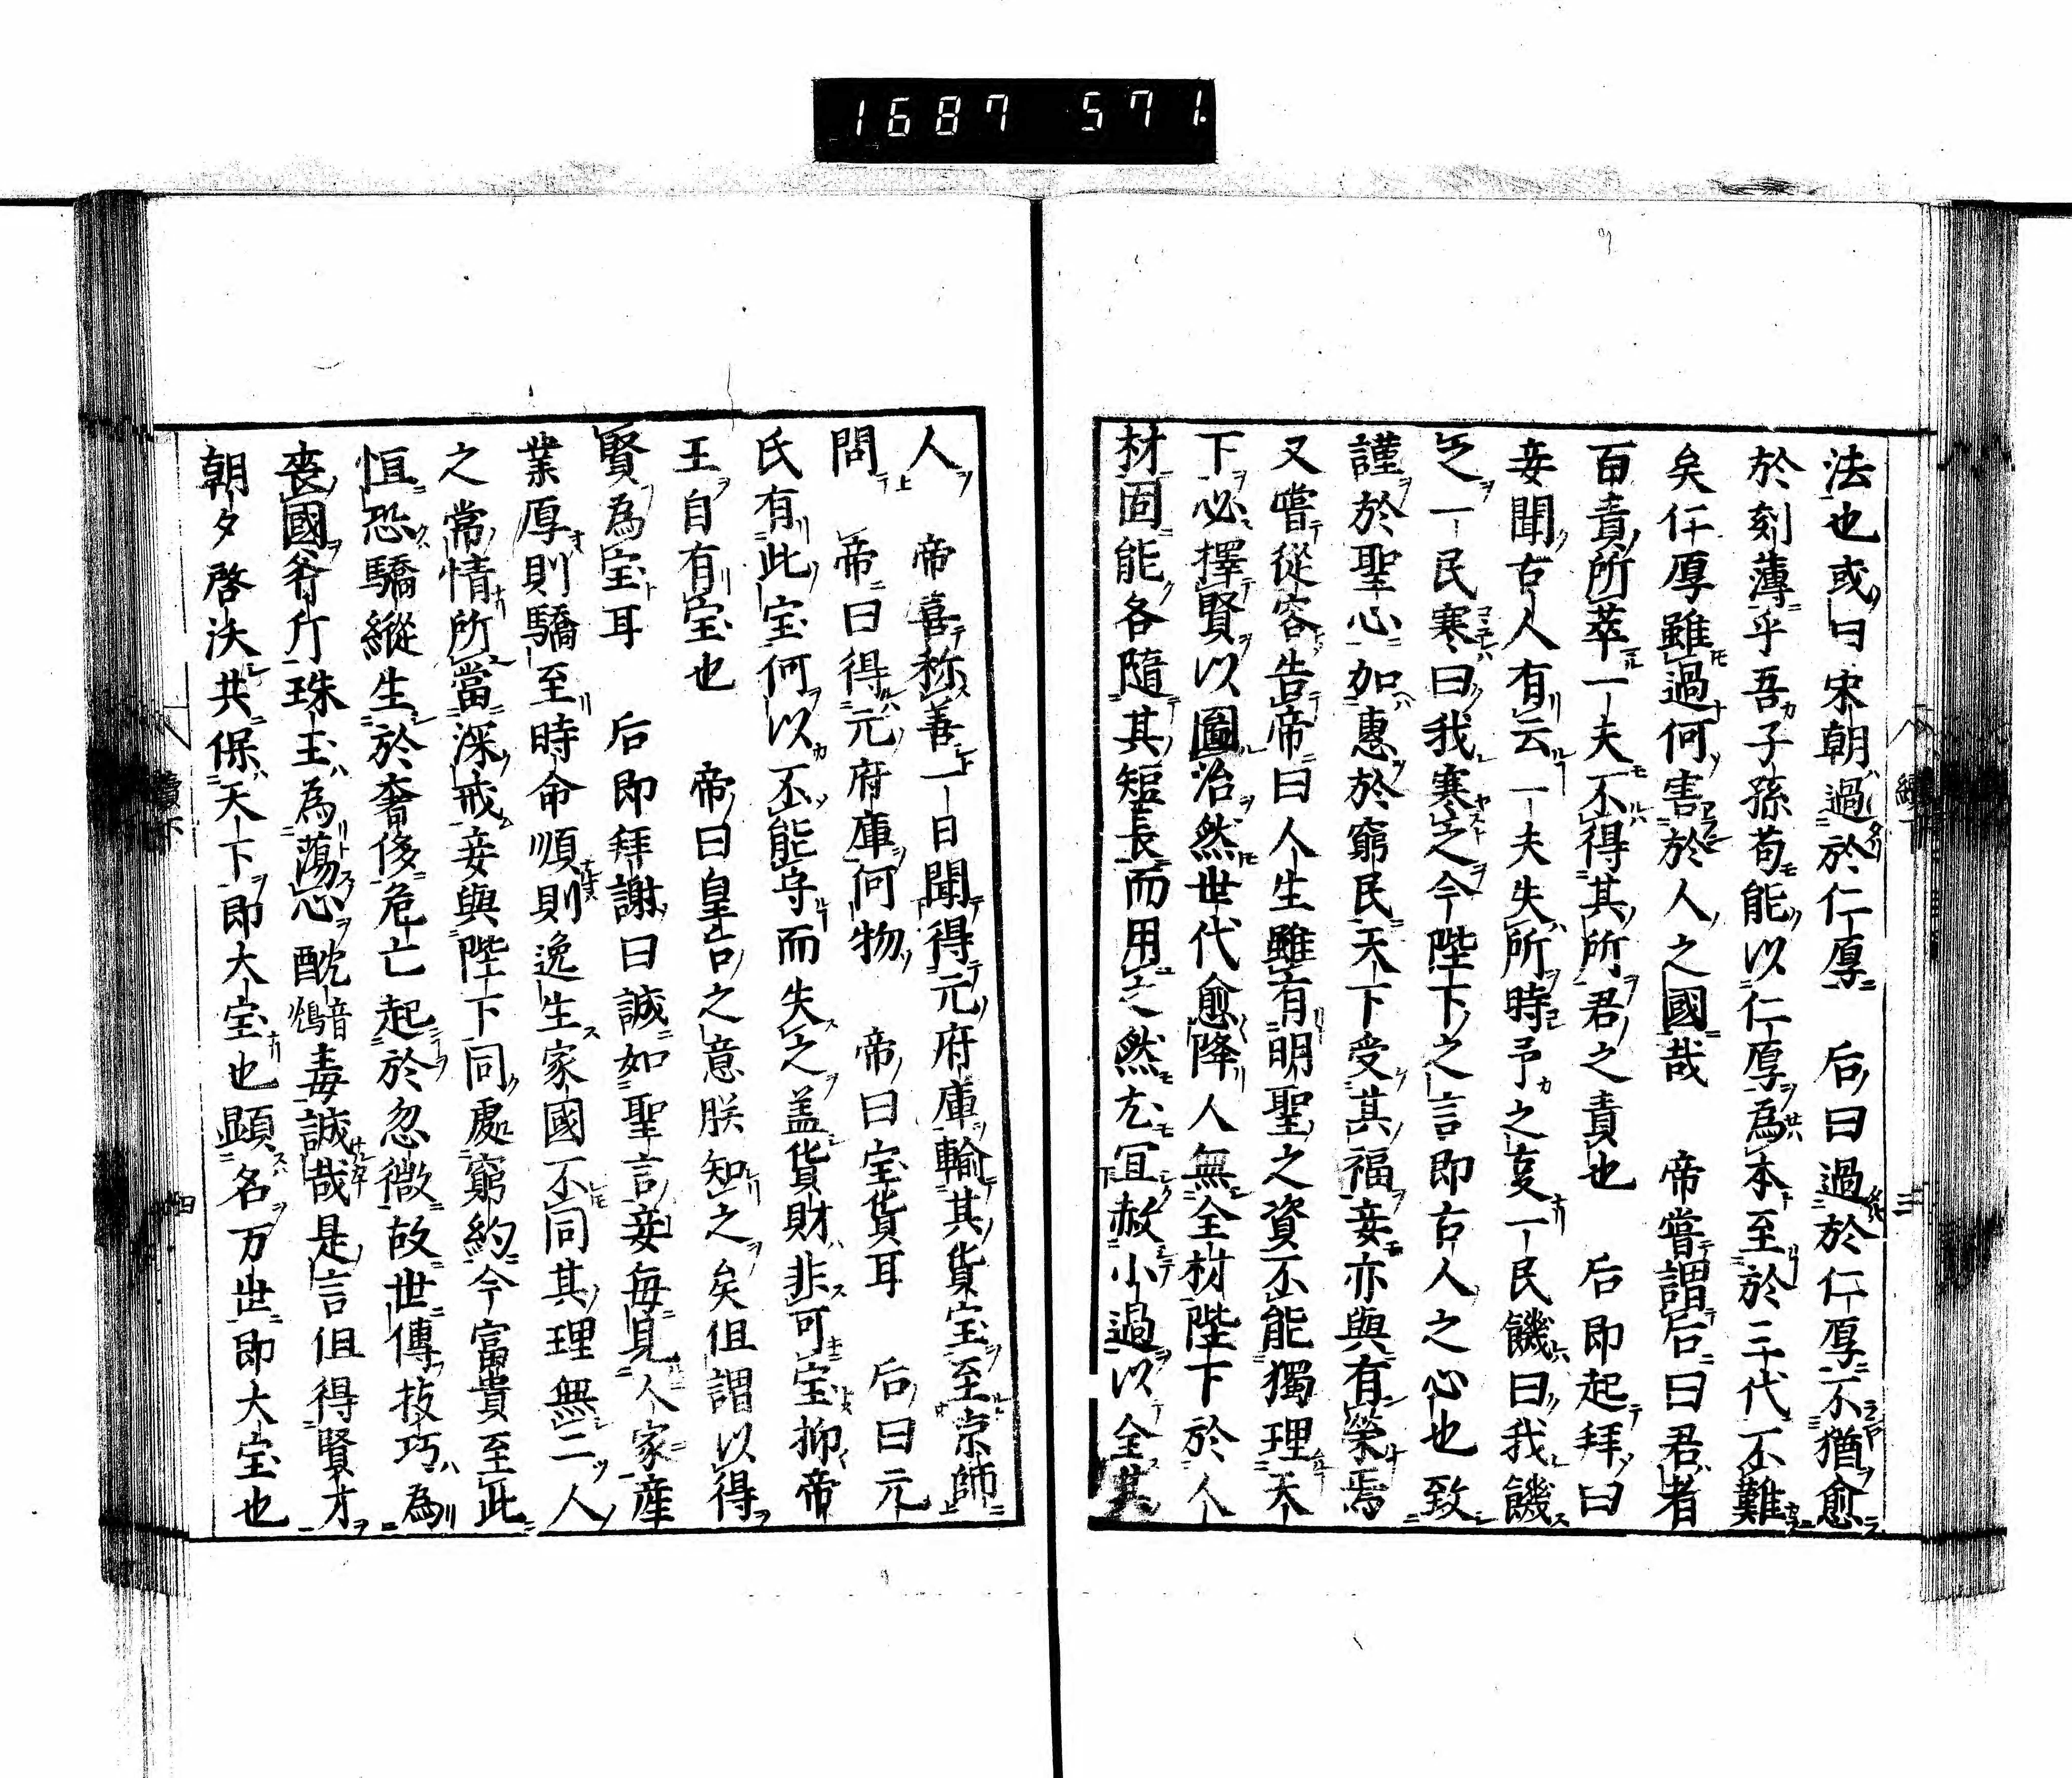 1687 571.
法也或曰宋朝過於仁厚 后曰過於仁厚不猶愈
於刻薄乎吾子孫苟能以仁厚為本至於三代不難
矣仁厚雖過何害於人之國哉 帝嘗謂后曰君者
百責所萃一夫不得其所君之責也 后即起拜曰
妾聞古人有云一夫失所時予之辜一民饑曰我饑
之一民寒曰我寒之今陛下之言即古人之心也致
謹於聖心加惠於窮民天下受其福妾亦與有榮焉
又嘗從容告帝曰人生雖有明聖之資不能獨理天
下必擇賢以圖治然世代愈降人無全材陛下於人
材固能各隨其短長而用之然尤宜赦小過以全其
人 帝喜称善一日聞得元府庫輸其貨宝至京師
問 帝曰得元府庫何物 帝曰宝貨耳 后曰元
氏有此宝何以不能守而失之盖貨財非可宝抑帝
王自有宝也 帝曰皇后之意朕知之矣但謂以得
賢為宝耳 后即拜謝曰誠如聖言妾每見人家産
業厚則驕至時命順則逸生家國不同其理無二人
之常情所當深戒妾與陛下同處窮約今富貴至此
恒恐驕縱生於奢侈危亡起於忽微故世傳技巧為
喪國斧斤珠玉為蕩心酖音鴆毒誠哉是言但得賢才
朝夕啓沃共保天下即大宝也顕名万世即大宝也
續下
三
續下
四